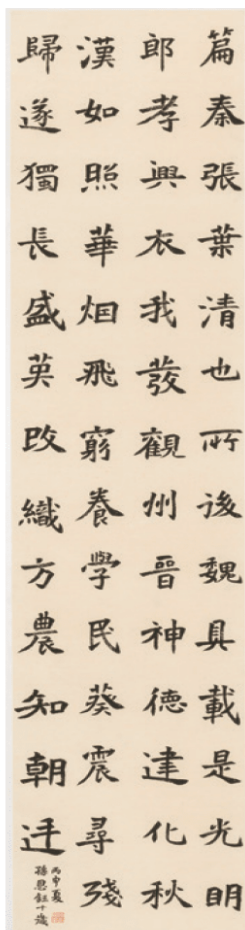 篇秦張葉清也所後魏具載是光明
郎孝興衣我發觀州晉神德建化秋
漢如照華烟飛窮養學民葵震尋殘
歸遂獨長盛英改織方農知朝迁
丙申夏
孫思鈺十歲